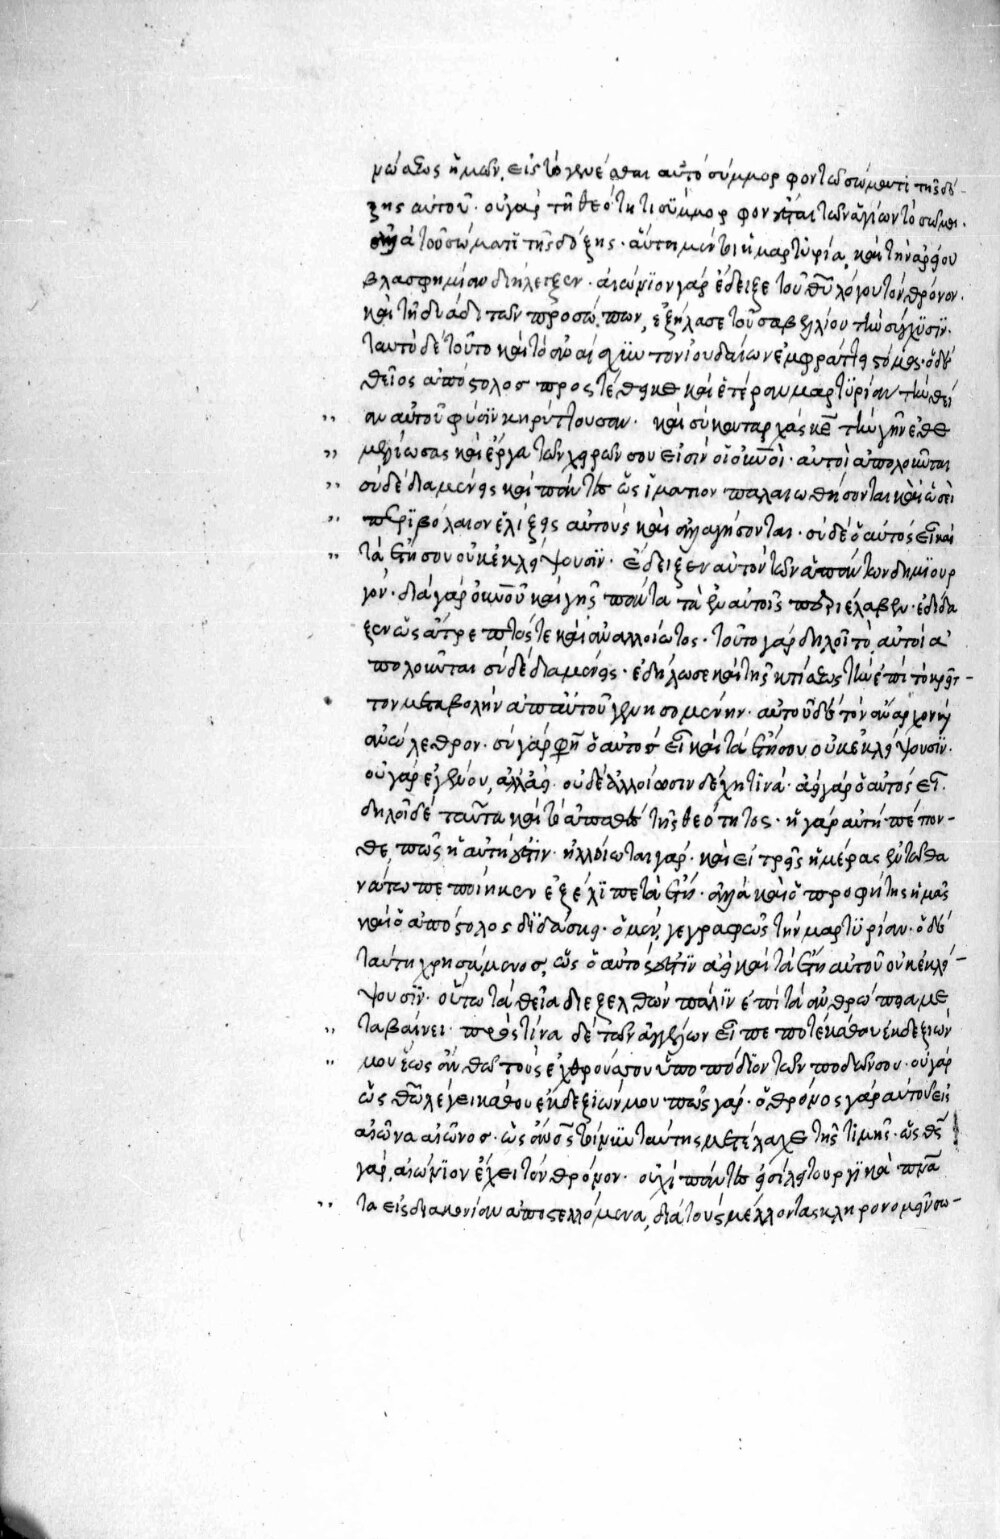 νώσεως ἡμῶν, εἰς τὸ γενέσθαι αὐτὸ σύμμορφον τῶ σώματι τῆς δό-
ξης αὐτοῦ· οὐ γὰρ τῆ θεότητι σύμμορφον γίνεται τῶν ἁγίων τὸ σῶμα·
ἀλλὰ τοῦ σώματι τῆς δόξης· αὕτη μέντοι ἡ μαρτυρία, καὶ τὴν ἀρείου
βλασφημίαν διήλεγξεν· αἰώνιον γὰρ ἔδειξε τοῦ θῦ λόγου τὸν θρόνον·
καὶ τῆ δυάδι τῶν προσώπων, ἐξήλασε τοῦ σαβελλίου τὴν σύγχυσιν·
ταυτὸ δὲ τοῦτο καὶ τὸ ἀναίσχυντον ἰουδαίων ἐμφράττει στόμα· ὁ δὲ
θεῖος ἀπόστολος προστέθηκε καὶ ἑτέραν μαρτυρίαν τὴν θεί
αν αὐτοῦ φύσιν κηρύττουσαν· καὶ σὺ κατ' ἀρχάς κε τὴν γῆν ἐθε
μελίωσας καὶ ἔργα τῶν χειρῶν σου εἰσὶν οἱ οὐνοὶ· αὐτοὶ ἀπολοῦνται
σὺ δὲ διαμένεις καὶ πάντες ὡς ἱμάτιον παλαιωθήσονται καὶ ὡσεὶ
περιβόλαιον ἑλίξεις αὐτοὺς καὶ ἀλλαγήσονται· σὺ δὲ ὁ αὐτὸς εἶ καὶ
τὰ ἔτη σου οὐκ ἐκλείψουσιν· ἔδειξεν αὐτὸν τῶν ἁπάντων δημιουρ
γόν· διὰ γὰρ οὐνοῦ καὶ γῆς πάντα τὰ ἐν αὐτοῖς περιέλαβεν· ἐδίδα
ξεν ὡς ἄτρεπτός τε καὶ ἀναλλοίωτος· τοῦτο γὰρ δηλοῖ τὸ, αὐτοὶ ἀ
πολοῦνται σὺ δὲ διαμένεις· ἐδήλωσε καὶ τῆς κτίσεως τὴν ἐπὶ τὸ κρεῖτ-
τον μεταβολὴν ὑπ' αὐτοῦ γενησομένην· αὐτοῦ δὲ τὸν ἄναρχον καὶ
ἀνώλεθρον· σὺ γὰρ φη ὁ αὐτὸς εἶ καὶ τὰ ἔτη σου οὐκ ἐκλείψουσιν·
οὐ γὰρ ἐγένου, ἀλλ' εἶς· οὐδὲ ἀλλοίωσιν δέχη τινά· ἀεὶ γὰρ ὁ αὐτὸς εἶ·
δηλοῖ δὲ ταῦτα καὶ τὸ ἀπαθὲς τῆς θεότητος· εἰ γὰρ αὐτὴ πέπον-
θε, πῶς ἡ αὐτή ἐστιν· ἠλλοίωται γάρ· καὶ εἰ τρεῖς ἡμέρας ἐν τῶ θα
νάτω πεποίηκεν ἐξέλιπε τὰ ἔτη· ἀλλὰ καὶ ὁ προφήτης ἡμᾶς
καὶ ὁ ἀπόστολος διδάσκει· ὁ μὲν, γεγραφὼς τὴν μαρτυρίαν· ὁ δὲ
ταύτη χρησάμενος, ὡς ὁ αὐτός ἐστιν ἀεὶ καὶ τὰ ἔτη αὐτοῦ οὐκ ἐκλεί-
ψουσιν· οὕτω τὰ θεῖα διεξελθὼν πάλιν ἐπὶ τὰ ἀνθρώπεια με
ταβαίνει· πρὸς τίνα δὲ τῶν ἀγγέλων εἶπε ποτὲ κάθου ἐκ δεξιῶν
μου ἕως ἂν θῶ τοὺς ἐχθρούς σου ὑποπόδιον τῶν ποδῶν σου· οὐ γὰρ
ὡς θῶ λέγει κάθου ἐκ δεξιῶν μου· πῶς γάρ· ὁ θρόνος γὰρ αὐτοῦ εἰς
αἰῶνα αἰῶνος· ὡς ἄνος τοίνυν ταύτης μετέλαχε τῆς τιμῆς· ὡς θς
γὰρ, αἰώνιον ἔχει τὸν θρόνον· οὐχὶ πάντες εἰσὶ λειτουργικὰ πνα
τα εἰς διακονίαν ἀποστελλόμενα, διὰ τοὺς μέλλοντας κληρονομεῖν σω-